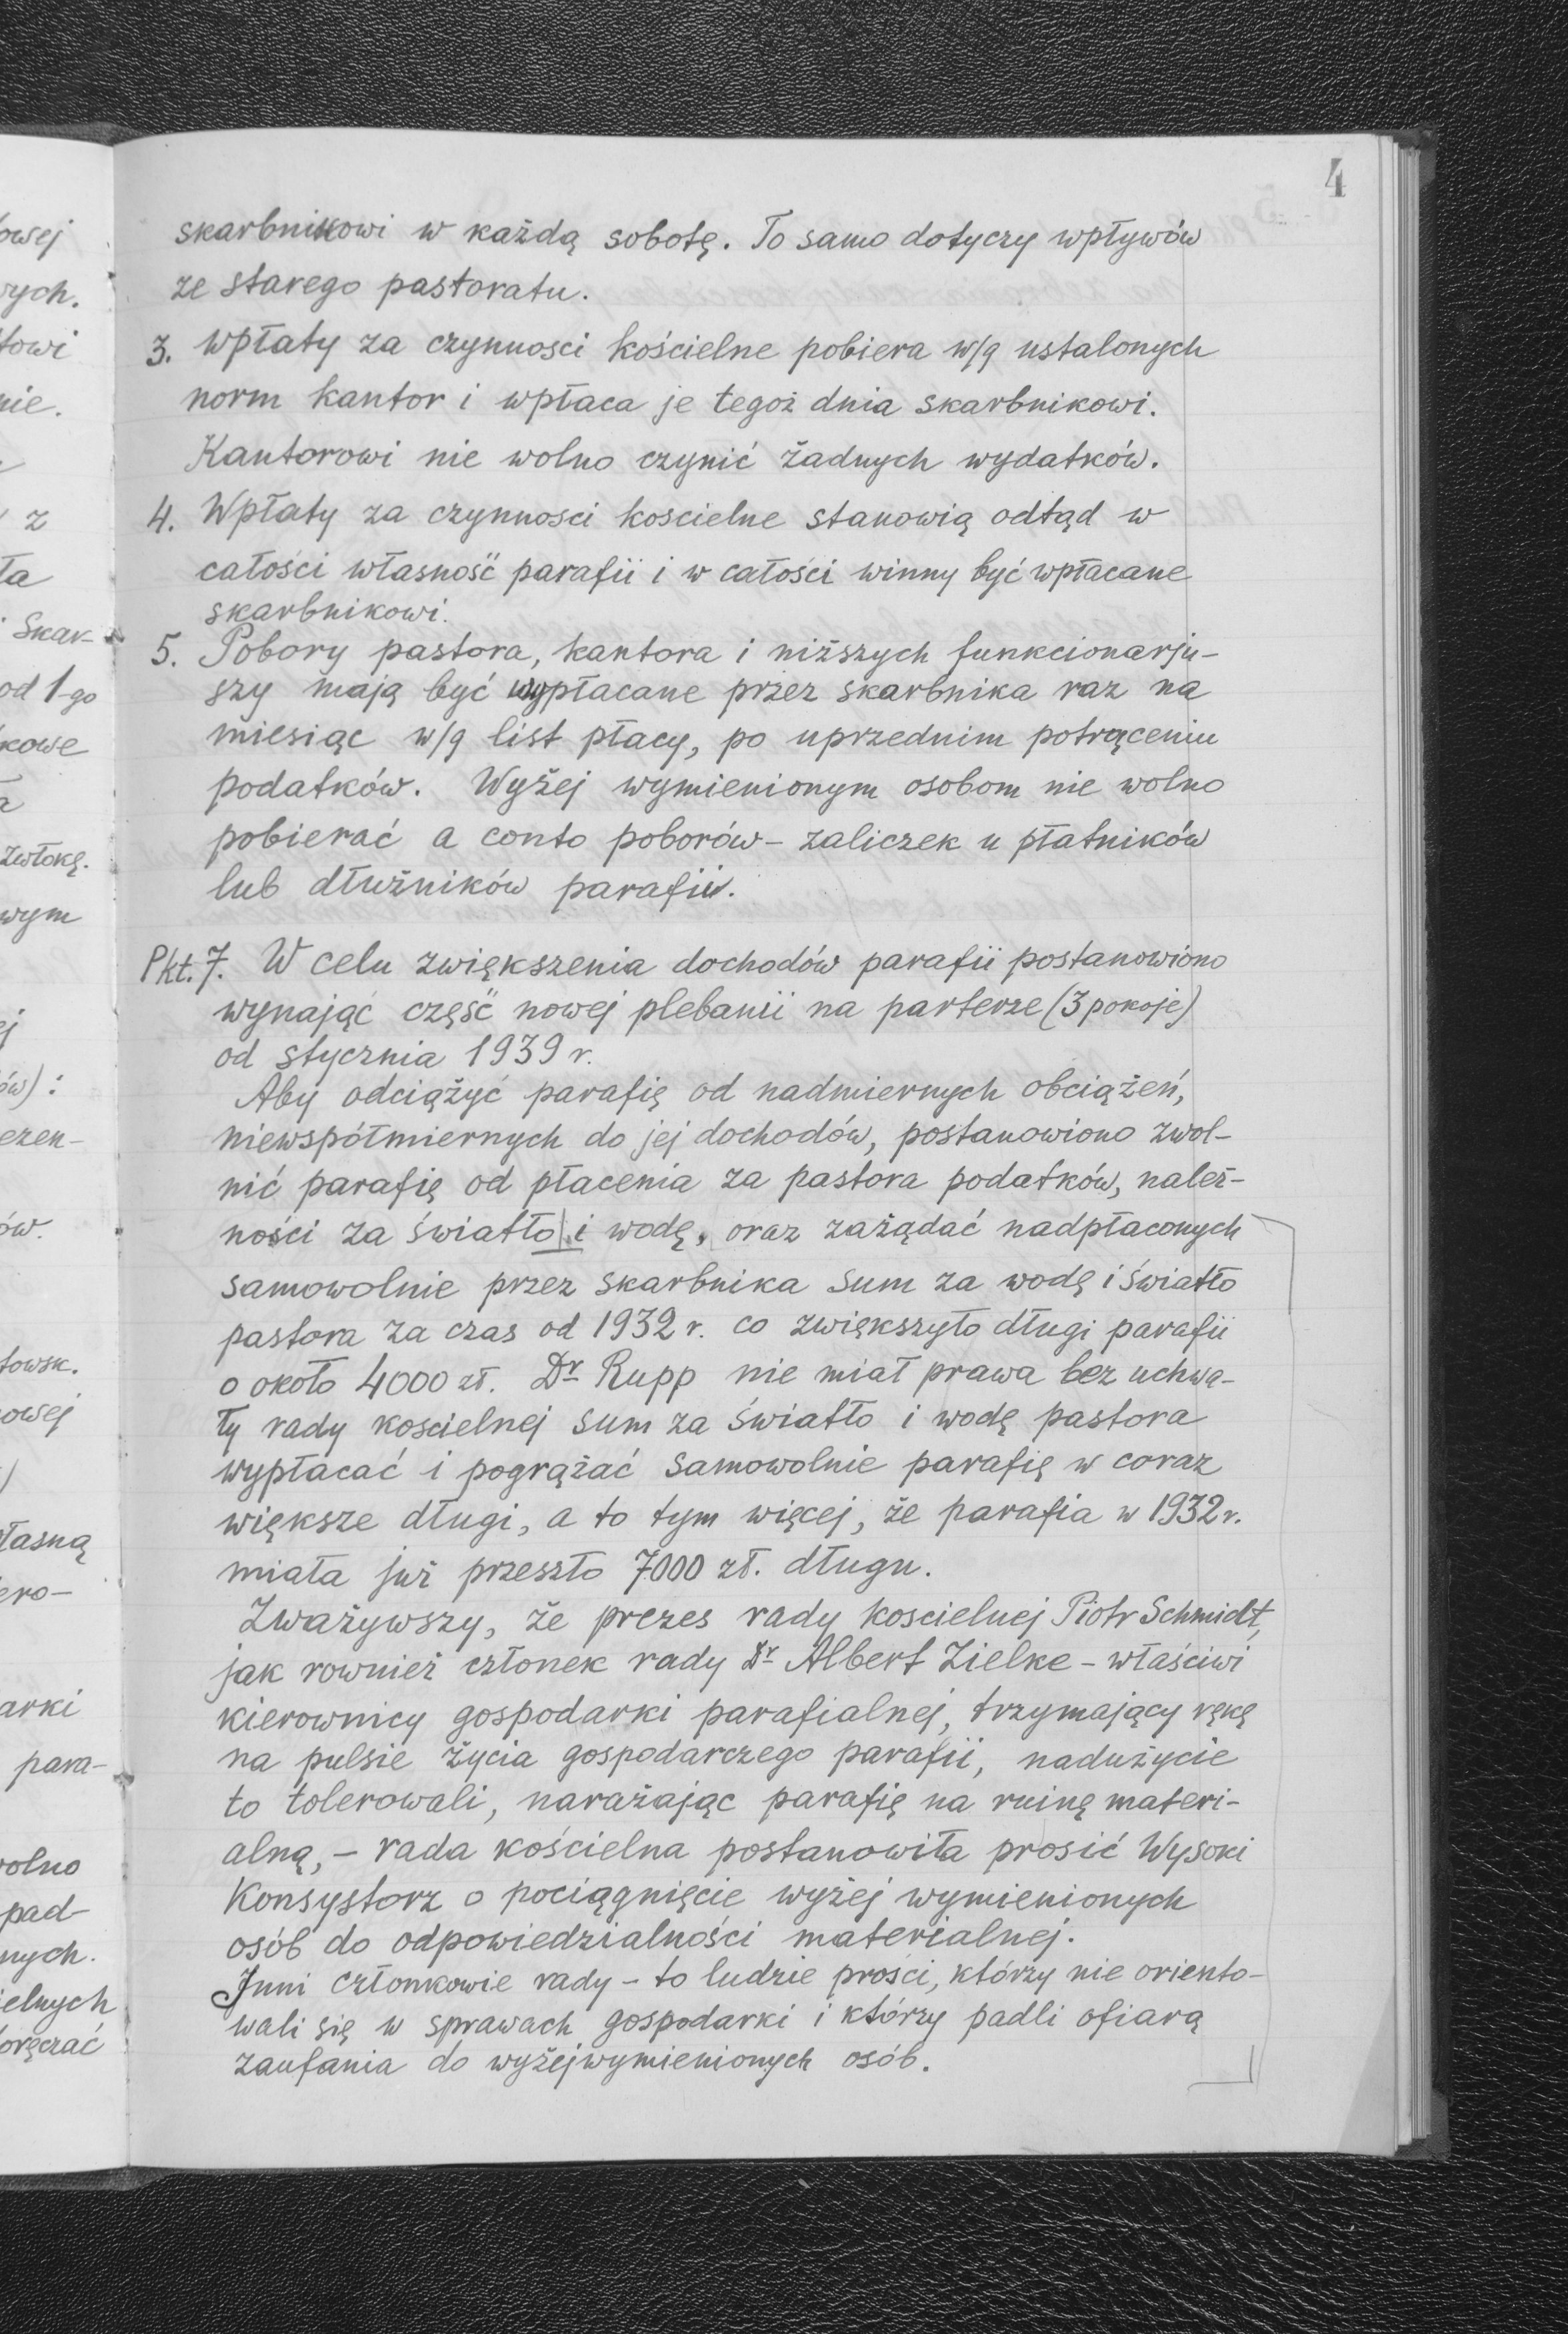 4
skarbnikowi w każdą sobotę. To samo dotyczy wpływów
ze starego pastoratu.
3. Wpłaty za czynnosci kościelne pobiera w/g ustalonych
norm kantor i wpłaca je tegoż dnia skarbnikowi.
Kantorowi nie wolno czynić żadnych wydatków.
4. Wpłaty za czynnosci koscielne stanowią odtąd w
całości własność parafii i w całości winny być wpłacane
skarbnikowi.
5. Pobory pastora, kantora i niższych funkcionarju-
szy mają być wypłacane przez skarbnika raz na
miesiąc w/g list płacy, po uprzednim potrąceniu
podatków. Wyżej wymienionym osobom nie wolno
pobierać a conto poborów - zaliczek u płatników
lub dłużników parafii.
Pkt. 7. W celu zwiększenia dochodów parafii postanowiono
wynająć część nowej plebanii na parterze (3 pokoje)
od stycznia 1939 r.
Aby odciążyć parafię od nadmiernych obciążeń,
niewspółmiernych do jej dochodów, postanowiono zwol-
nić parafię od płacenia za pastora podatków, należ-
ności za światło i wodę, oraz zażądać nadpłaconych
samowolnie przez skarbnika sum za wodę i światło
pastora za czas od 1932 r. co zwiększyło długi parafii
o około 4000 zł. Dr Rupp nie miał prawa bez uchwa-
ły rady koscielnej sum za światło i wodę pastora
wypłacać i pogrążać samowolnie parafię w coraz
większe długi, a to tym więcej, że parafia w 1932 r.
miała już przeszło 7000 zł. długu.
Zważywszy, że prezes rady koscielnej Piotr Schmidt,
jak rownież członek rady Dr Albert Zielke - właściwi
kierownicy gospodarki parafialnej, trzymający rękę
na pulsie życia gospodarczego parafii, nadużycie
to tolerowali, narażając parafię na ruinę materi-
alną, - rada kościelna postanowiła prosić Wysoki
Konsystorz o pociągnięcie wyżej wymienionych
osób do odpowiedzialności materialnej.
Inni członkowie rady - to ludzie prości, którzy nie oriento-
wali się w sprawach gospodarki i którzy padli ofiarą
zaufania do wyżejwymienionych osób.